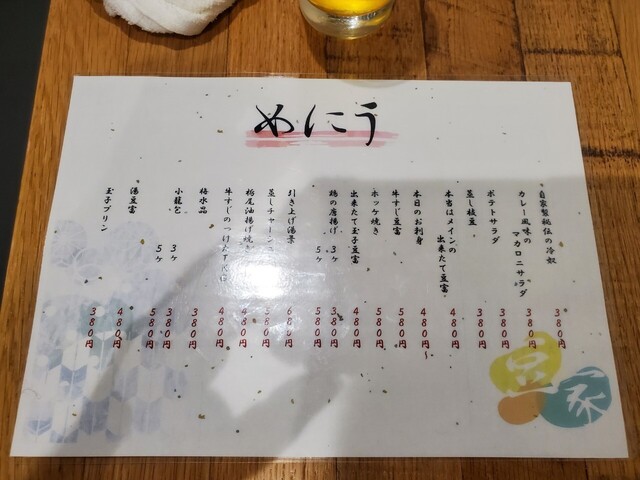 めにう
自家製秘伝の冷奴 380円
カレー風味の
マカロニサラダ 380円
ポテトサラダ 380円
蒸し枝豆 380円
本当はメインの
出来たて豆富。 480円
本日のお刺身 480円〜
牛すじ豆富 580円
ホッケ焼き 580円
出来たて玉子豆富 480円
鶏の唐揚げ 3ヶ 380円
5ヶ 580円
引き上げ湯葉 680円
蒸しチャーシュー
栃尾油揚げ焼き 480円
牛すじのつけ 480円
梅水晶 380円
小龍包 3ヶ 380円
5ヶ 580円
湯豆富 480円
玉子プリン 380円
豆家